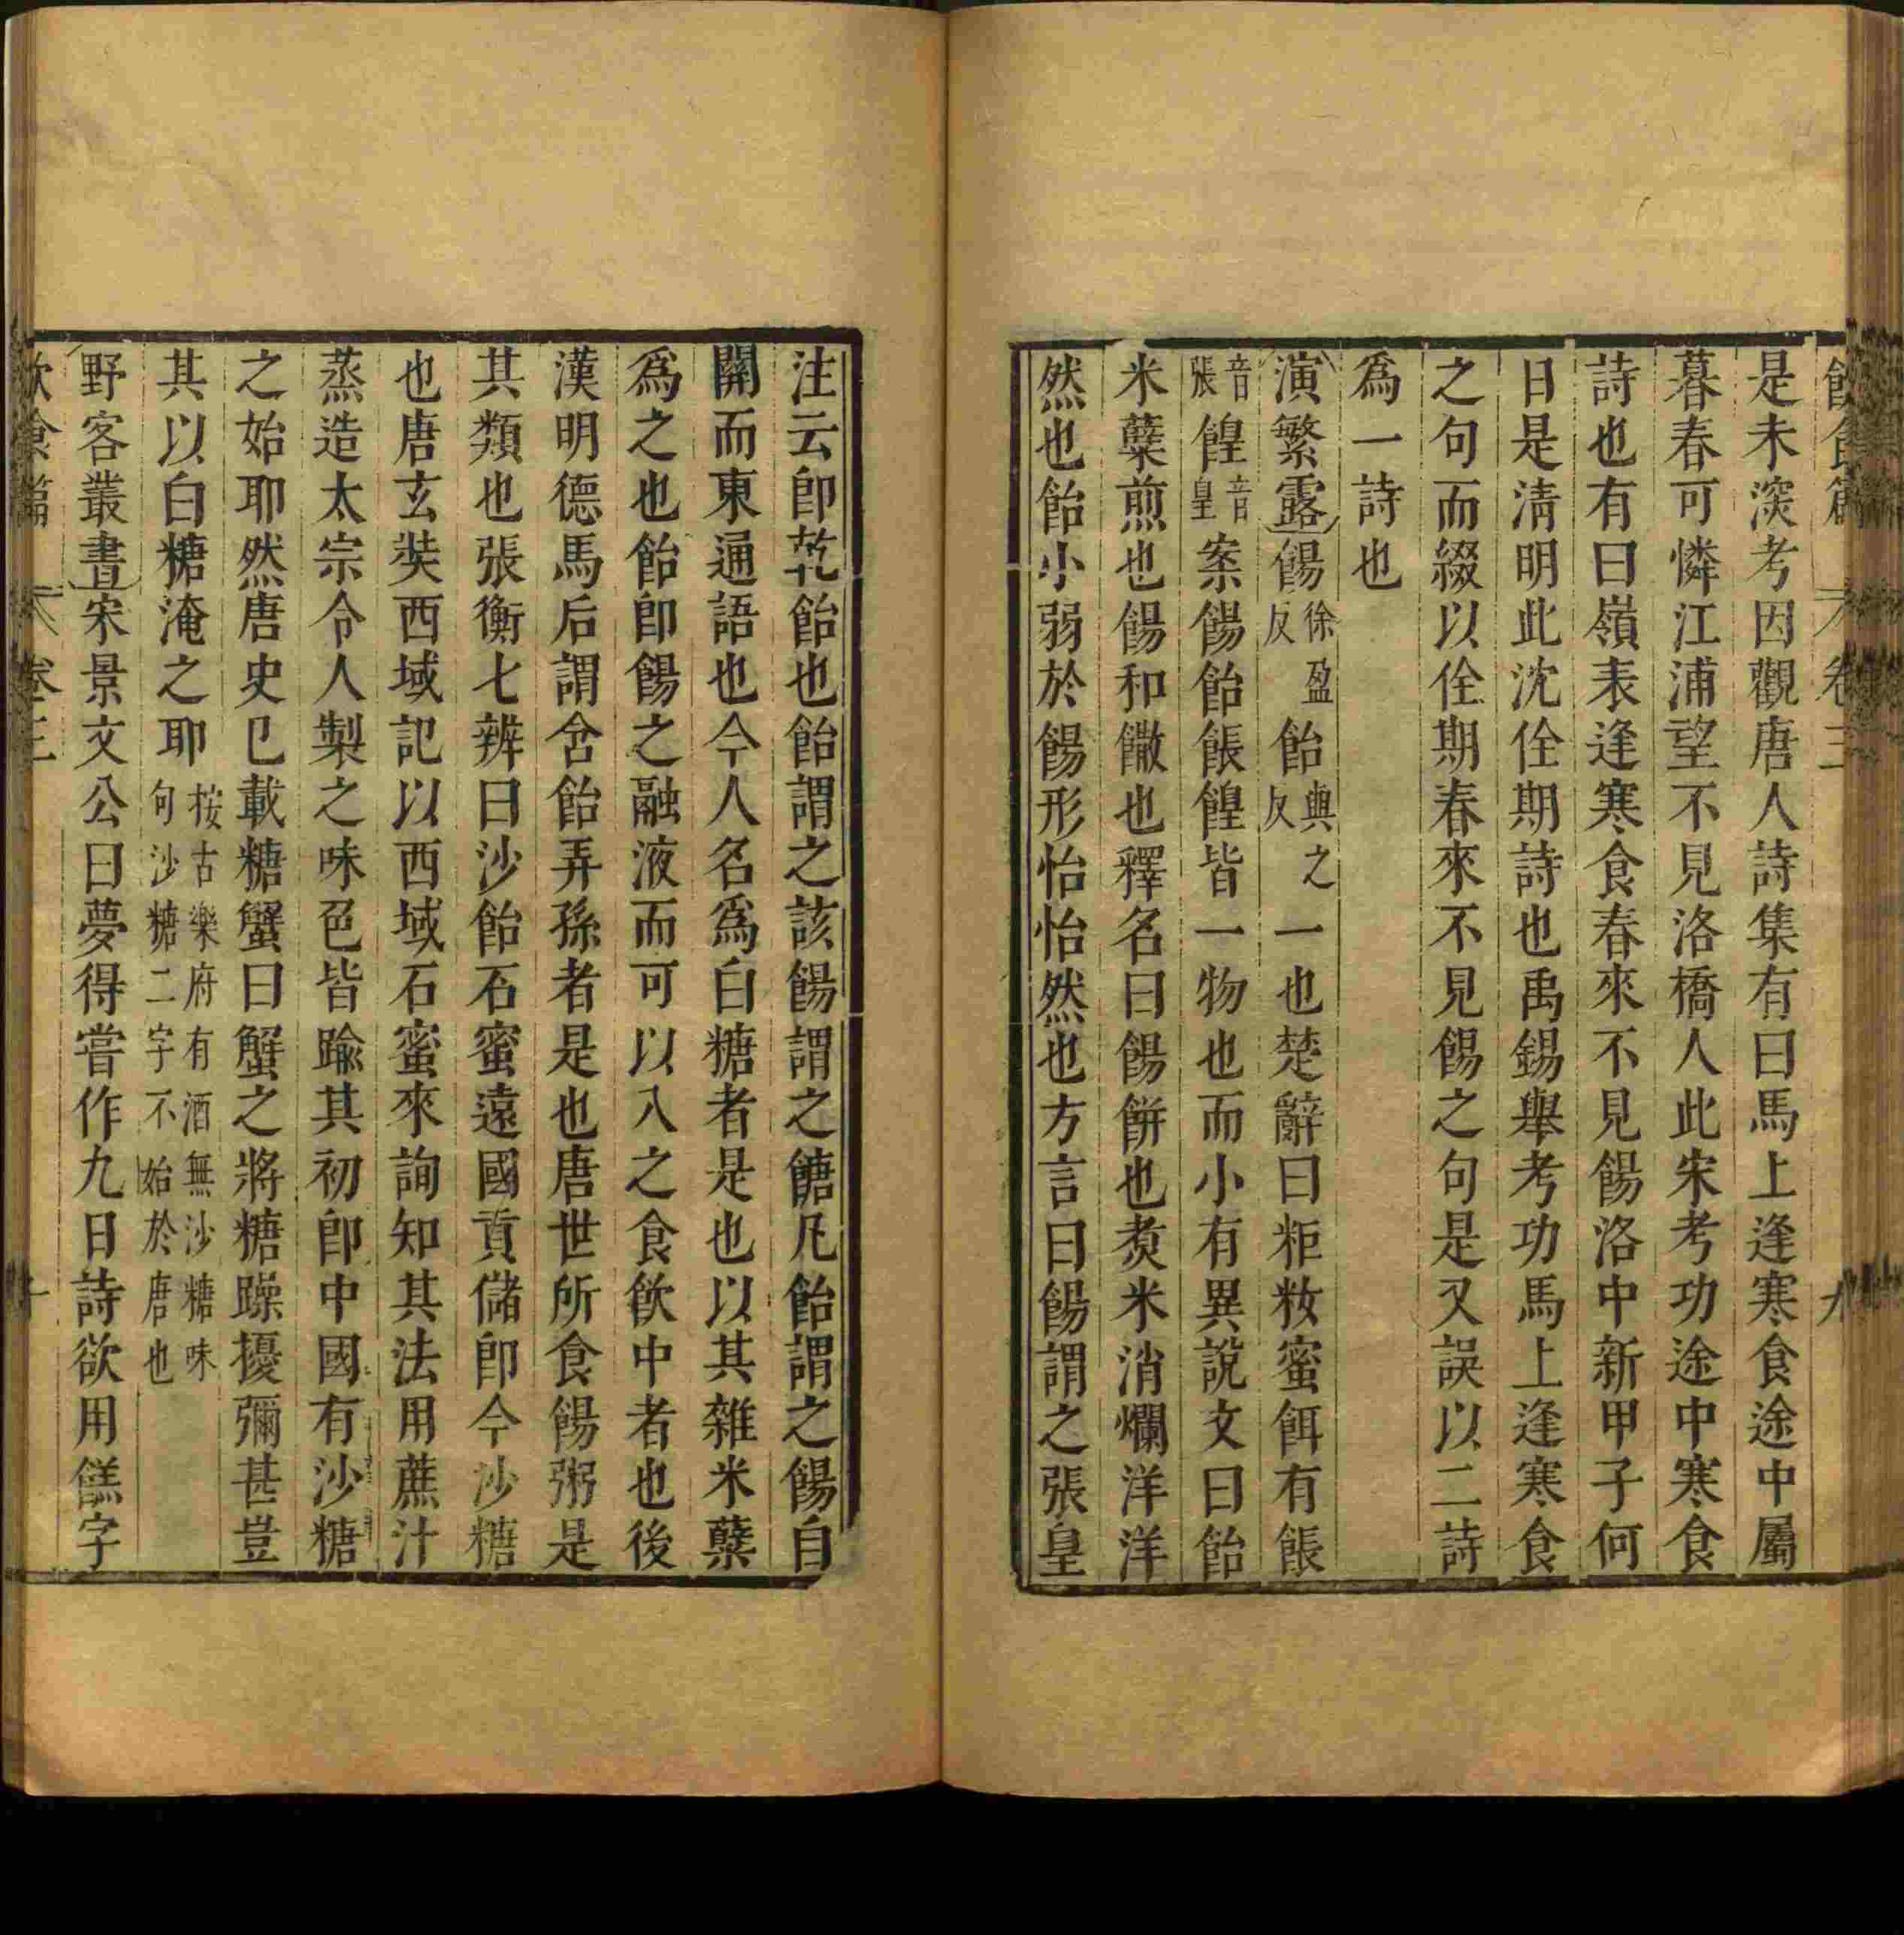 飲食篇 卷三 九
是未深考因觀唐人詩集有曰馬上逢寒食途中屬
暮春可憐江浦望不見洛橋人此宋考功途中寒食
詩也有曰嶺表逢寒食春來不見餳洛中新甲子何
日是淸明此沈佺期詩也禹錫舉考功馬上逢寒食
之句而綴以佺期春來不見餳之句是又誤以二詩
爲一詩也
演繁露餳徐盈反飴與之反一也楚辭曰粔籹蜜餌有餦
音張餭音皇案餳飴餦餭皆一物也而小有異說文曰飴
米糵煎也餳和饊也釋名曰餳餅也煑米消爛洋洋
然也飴小弱於餳形怡怡然也方言曰餳謂之張皇
注云卽乾飴也飴謂之該餳謂之餹凡飴謂之餳自
關而東通語也今人名爲白糖者是也以其雜米糵
爲之也飴卽餳之融液而可以入之食飮中者也後
漢明德馬后謂含飴弄孫者是也唐世所食餳粥是
其類也張衡七辨曰沙飴石蜜遠國貢儲卽今沙糖
也唐玄奘西域記以西域石蜜來詢知其法用蔗汁
蒸造太宗令人製之味色皆踰其初卽中國有沙糖
之始耶然唐史已載糖蟹曰蟹之將糖躁擾彌甚豈
其以白糖淹之耶按古樂府有酒無沙糖味句沙糖二字不始於唐也
野客叢書宋景文公曰夢得嘗作九日詩欲用餻字
飲食篇 卷三 十